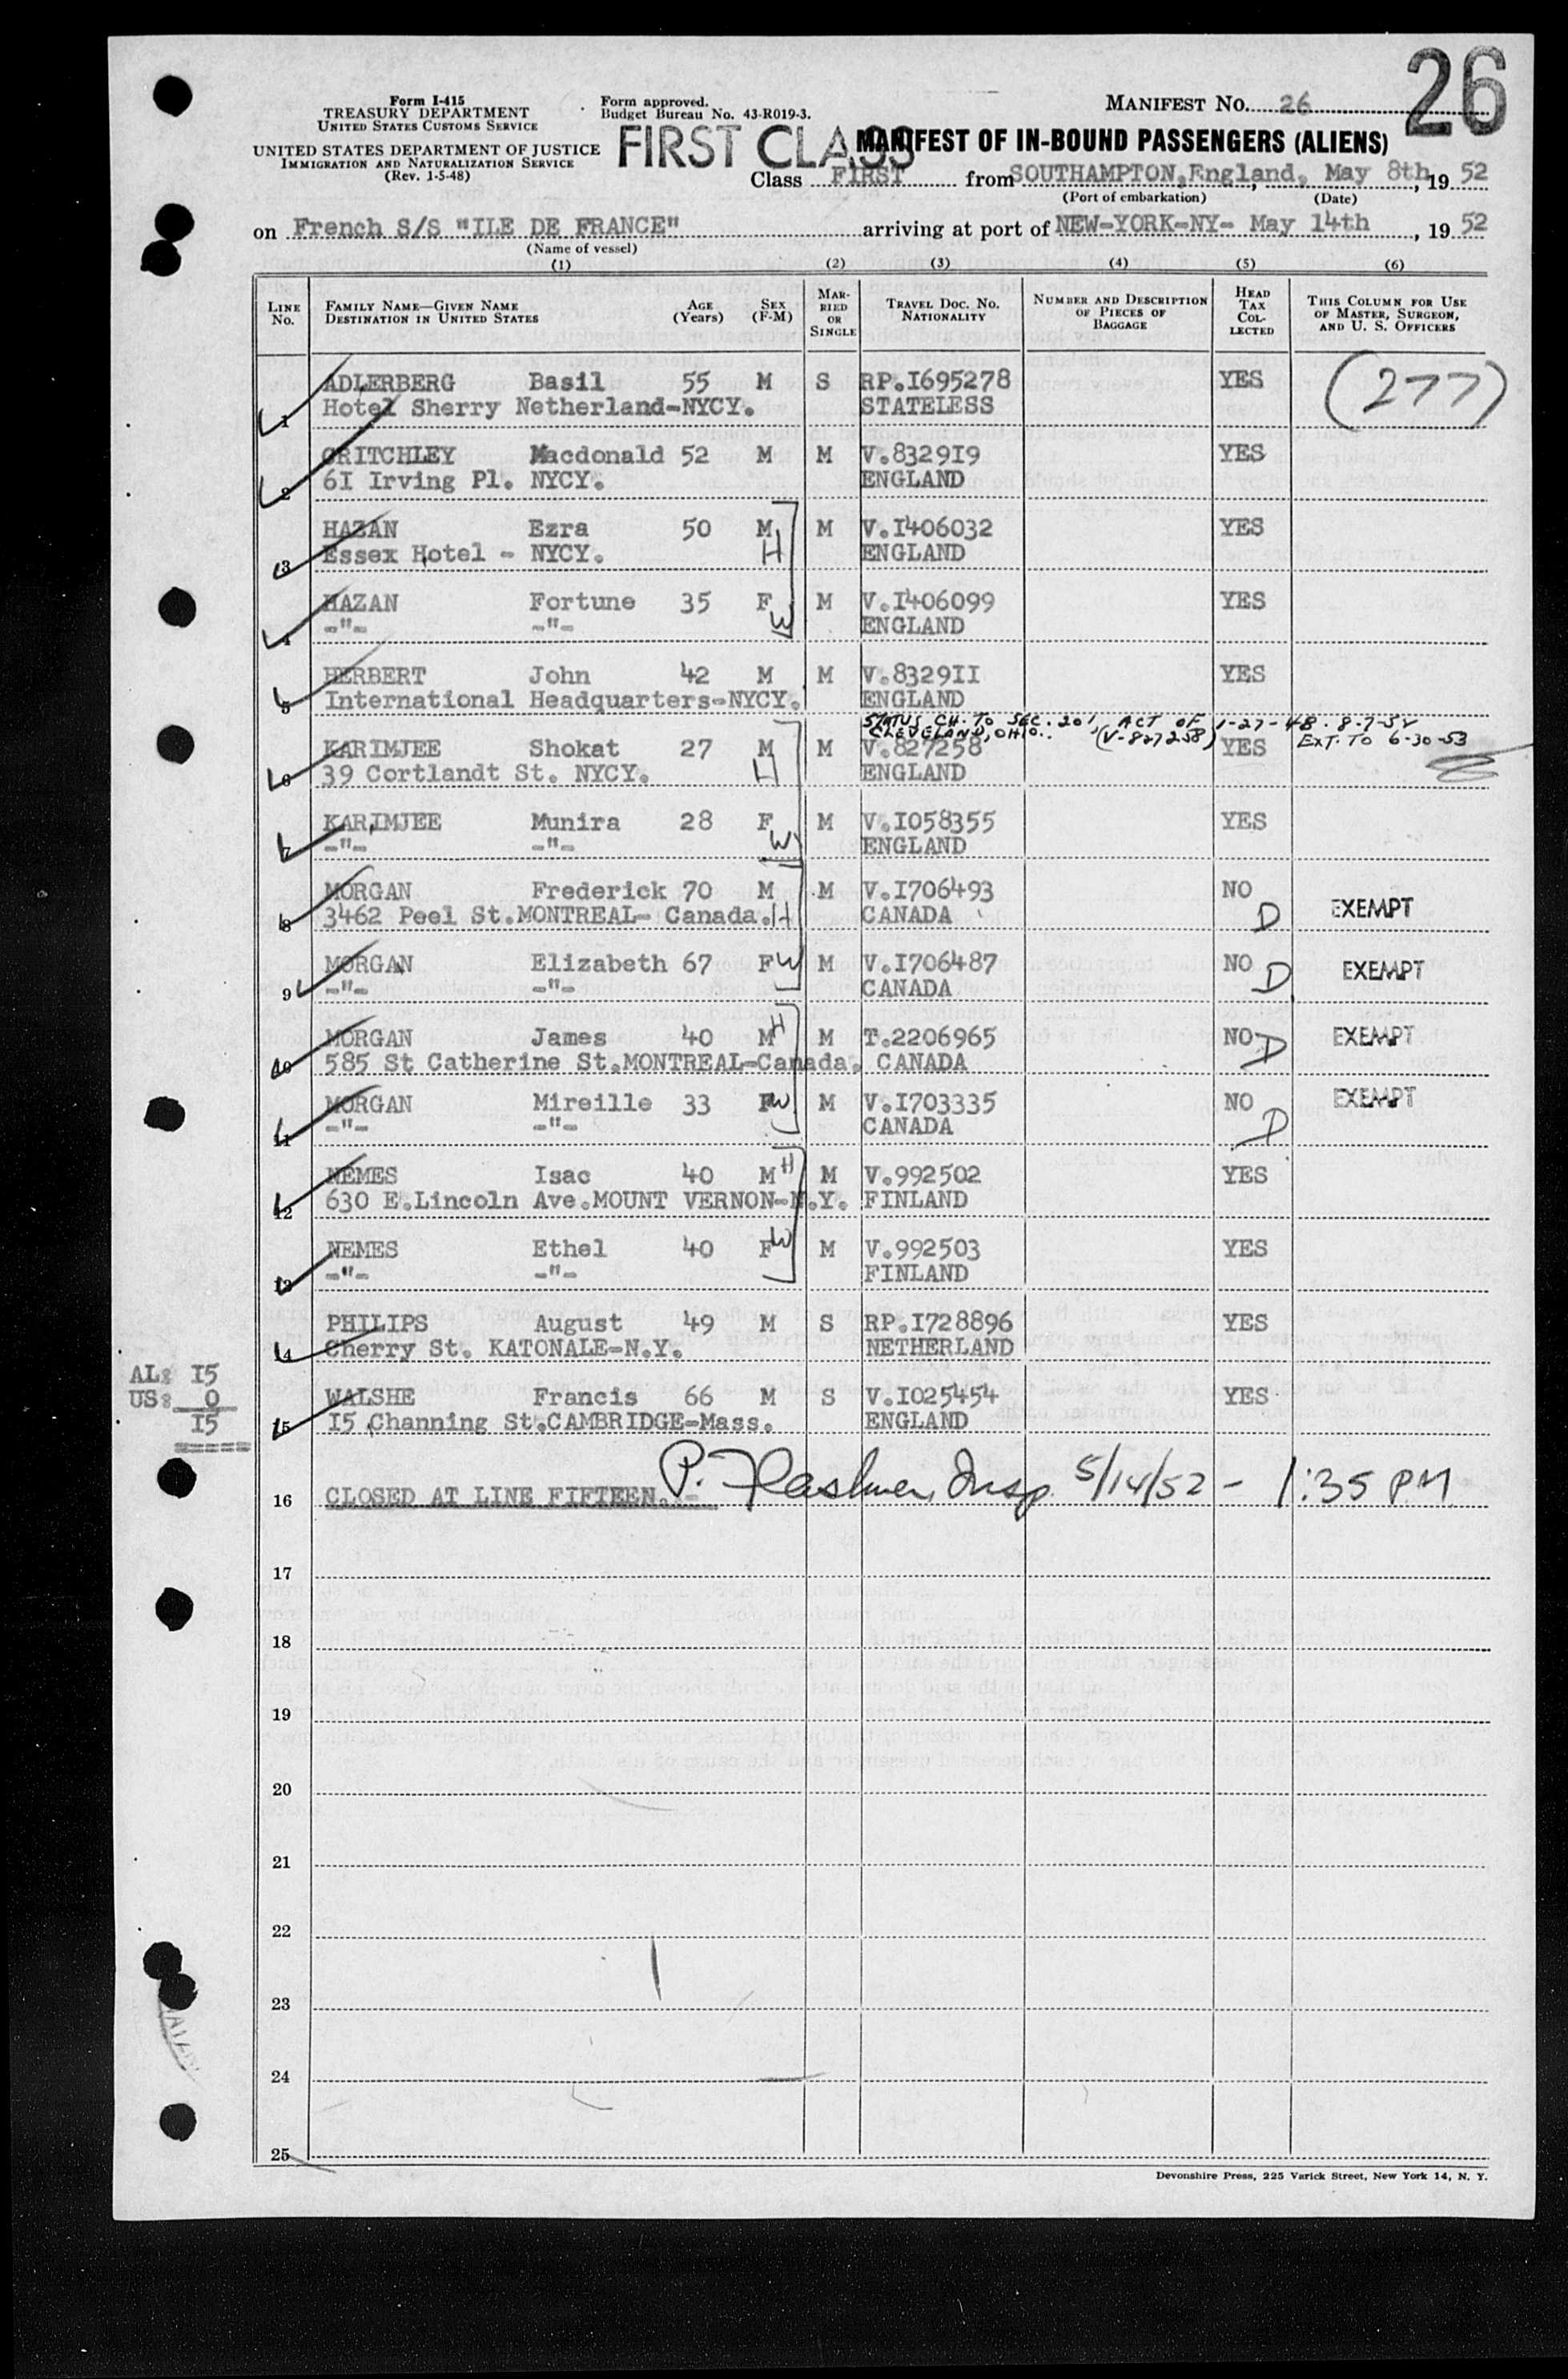 26
Form I-415
TREASURY DEPARTMENT
UNITED STATES CUSTOMS SERVICE
UNITED STATES DEPARTMENT OF JUSTICE
IMMIGRATION AND NATURALIZATION SERVICE
(Rev. 1-5-48)
Form approved.
Budget Bureau No. 43-R019-3.
MANIFEST No. 26
FIRST CLASS
MANIFEST OF IN-BOUND PASSENGERS (ALIENS)
Class FIRST from SOUTHAMPTON,England, May 8th, 19 52
(Port of embarkation) (Date)
on French S/S "ILE DE FRANCE" arriving at port of NEW-YORK-NY- May 14th, 19 52
(Name of vessel)
(1) (2) (3) (4) (5) (6)
LINE No. FAMILY NAME—GIVEN NAME DESTINATION IN UNITED STATES AGE (Years) SEX (F-M) MARRIED OR SINGLE TRAVEL DOC. NO. NATIONALITY NUMBER AND DESCRIPTION OF PIECES OF BAGGAGE HEAD TAX COLLECTED THIS COLUMN FOR USE OF MASTER, SURGEON, AND U. S. OFFICERS
ADLERBERG Basil 55 M S RP.I695278 YES (277)
1 Hotel Sherry Netherland-NYCY. STATELESS
CRITCHLEY Macdonald 52 M M V.8329I9 YES
2 6I Irving Pl. NYCY. ENGLAND
HAZAN Ezra 50 M M V.I406032 YES
3 Essex Hotel - NYCY. H ENGLAND
HAZAN Fortune 35 F M V.I406099 YES
4 -"- -"- W ENGLAND
HERBERT John 42 M M V.8329II YES
5 International Headquarters-NYCY. ENGLAND
STATUS CH. TO SEC. 201, ACT OF 1-27-48. 8-7-52
CLEVELAND, OHIO. (V-827258) EXT. TO 6-30-53
KARIMJEE Shokat 27 M M V.827258 YES
6 39 Cortlandt St. NYCY. H ENGLAND
KARIMJEE Munira 28 F M V.I058355 YES
7 -"- -"- W ENGLAND
MORGAN Frederick 70 M M V.I706493 NO
8 3462 Peel St.MONTREAL- Canada. H CANADA D EXEMPT
MORGAN Elizabeth 67 F W M V.I706487 NO
9 -"- -"- CANADA D EXEMPT
MORGAN James 40 M H M T.2206965 NO D EXEMPT
10 585 St Catherine St.MONTREAL-Canada. CANADA
MORGAN Mireille 33 F W M V.I703335 NO EXEMPT
11 -"- -"- CANADA D
NEMES Isac 40 M H M V.992502 YES
12 630 E.Lincoln Ave.MOUNT VERNON-N.Y. FINLAND
NEMES Ethel 40 F W M V.992503 YES
13 -"- -"- FINLAND
PHILIPS August 49 M S RP.I728896 YES
14 Cherry St. KATONALE-N.Y. NETHERLAND
AL: I5
US: 0
I5
WALSHE Francis 66 M S V.I025454 YES
15 I5 Channing St.CAMBRIDGE-Mass. ENGLAND
16 CLOSED AT LINE FIFTEEN.- P. Flashner, Insp. 5/14/52 - 1:35 PM
17
18
19
20
21
22
23
24
25
Devonshire Press, 225 Varick Street, New York 14, N. Y.